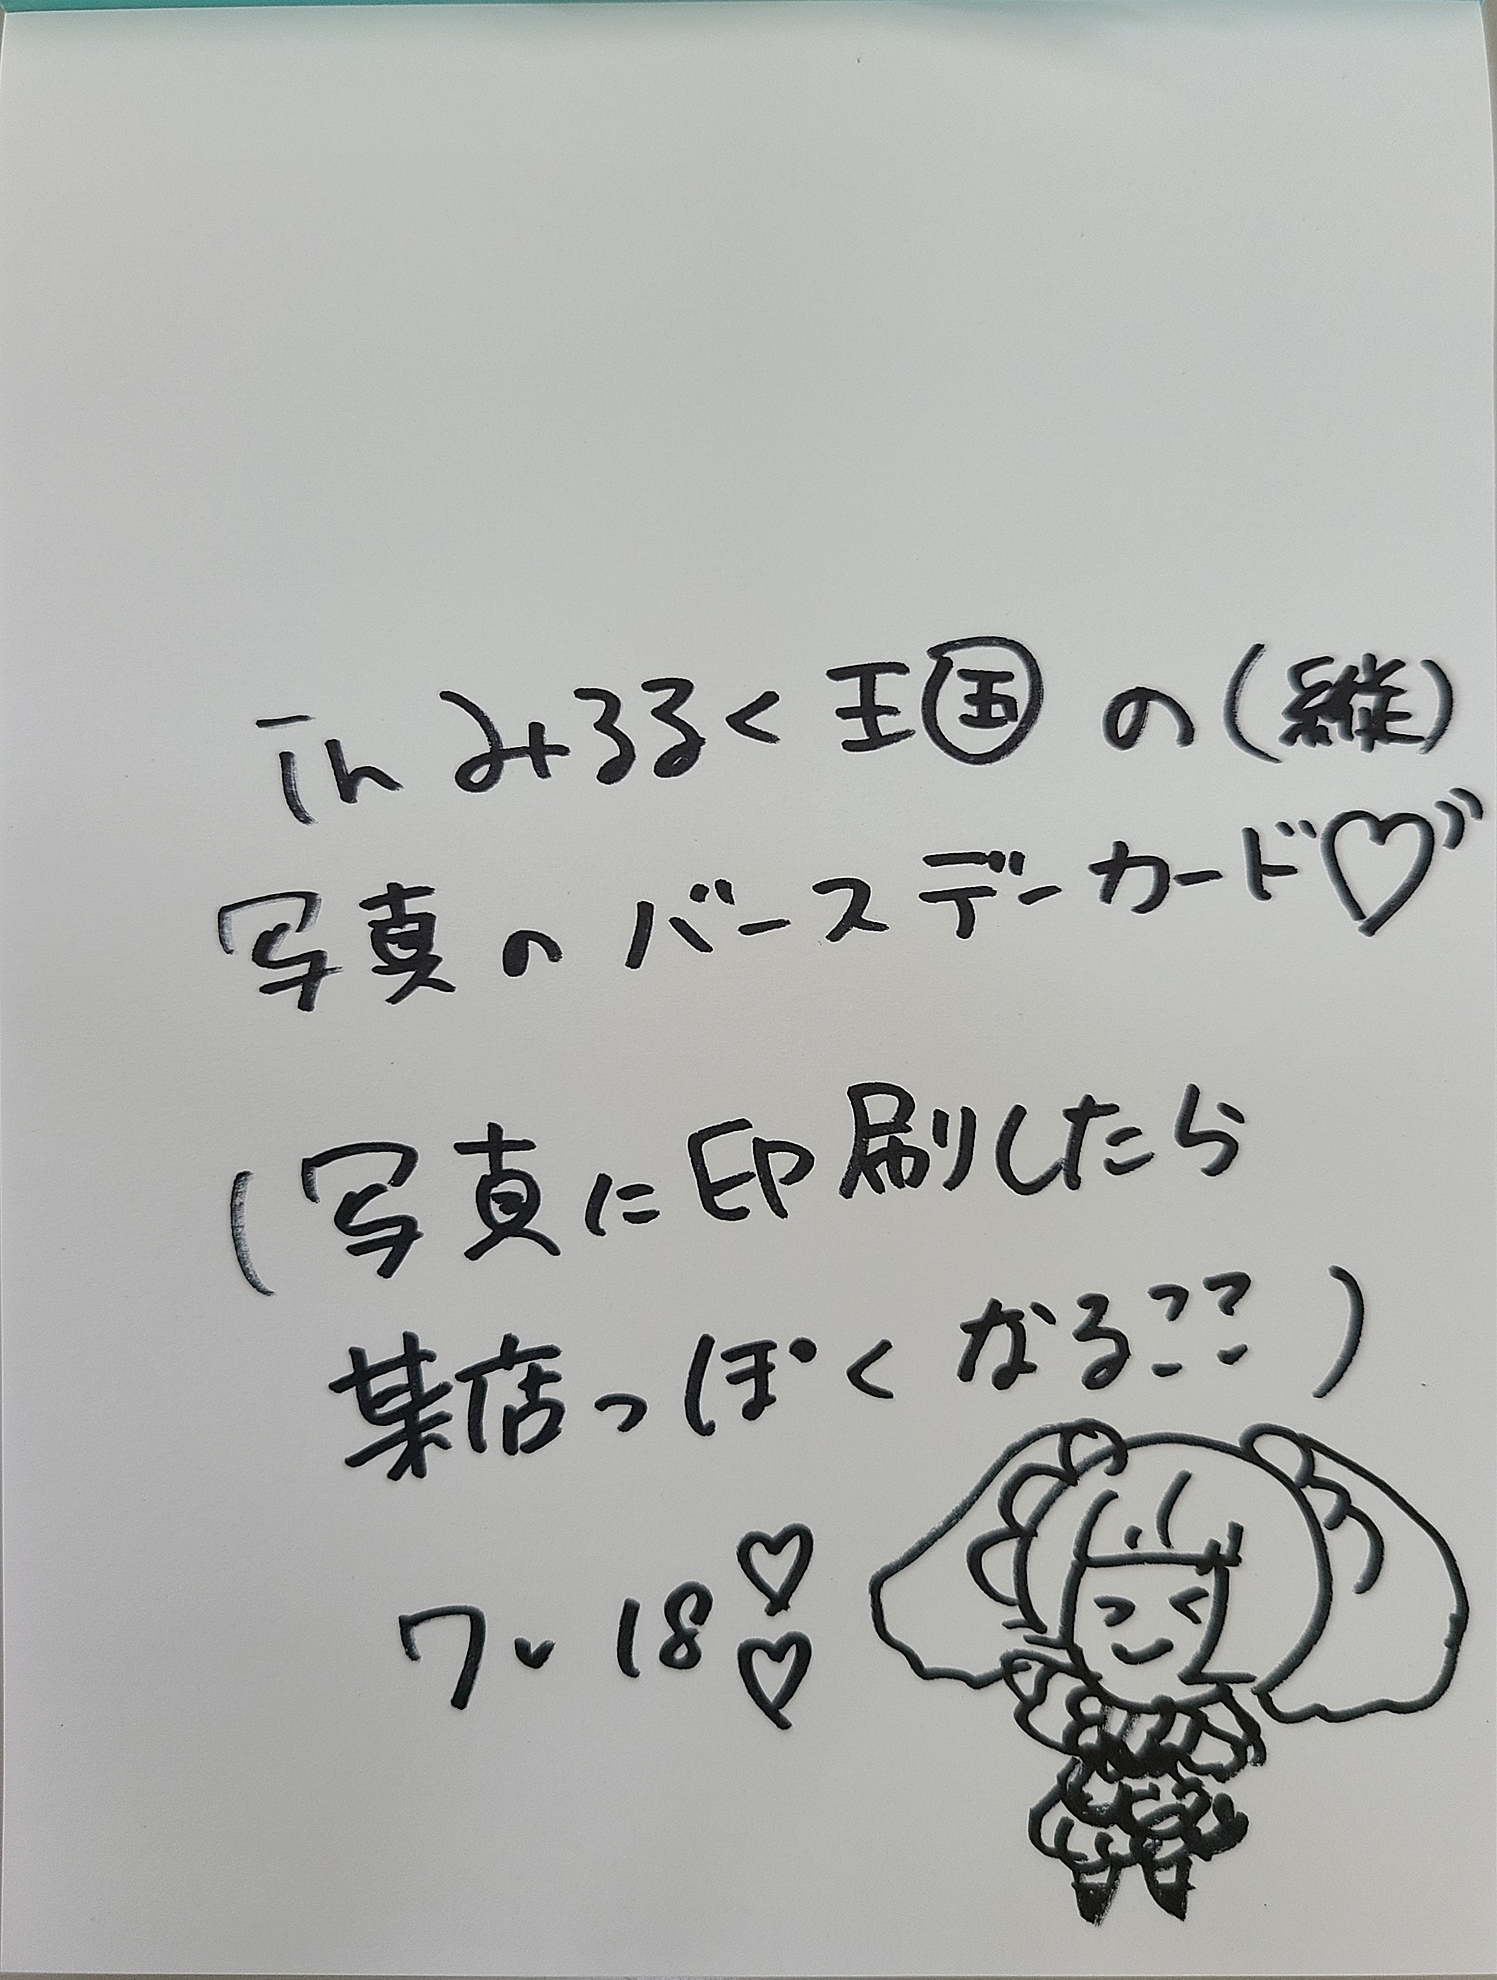 in みるるく王国の(縦)
写真のバースデーカード♡
(写真に印刷したら
某店っぽくなる:: )
ワ. 18♡♡